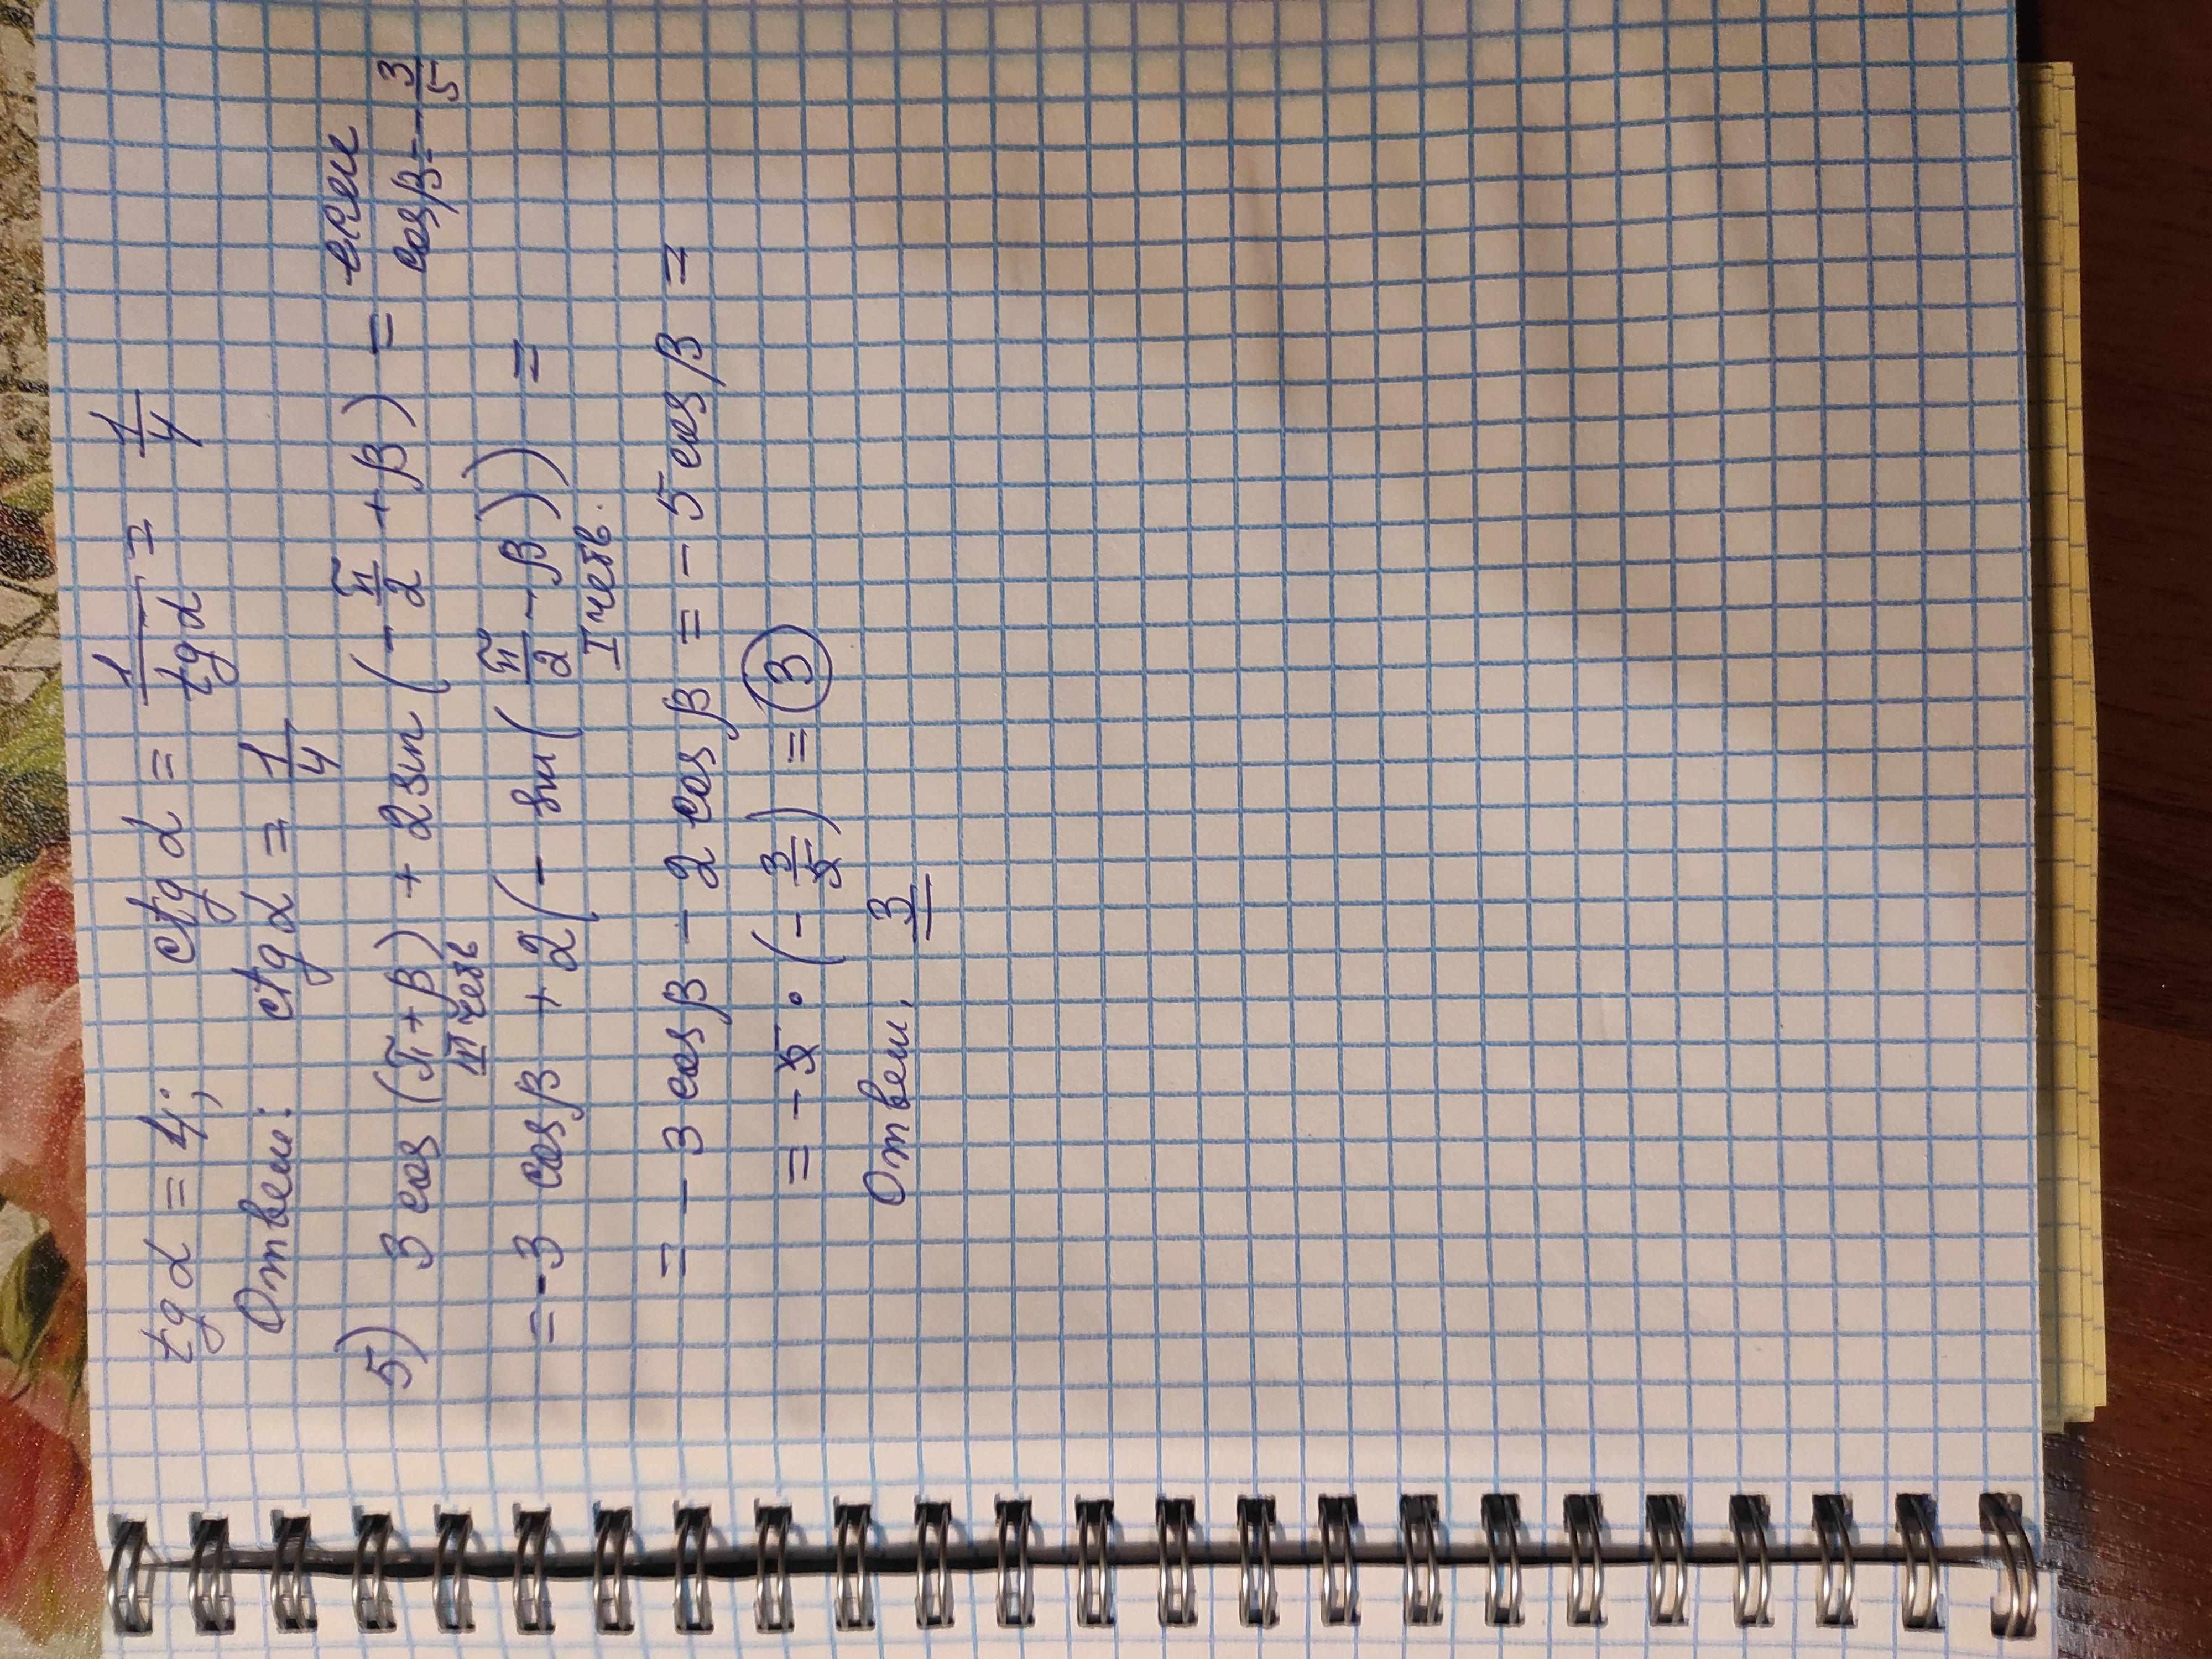 tg α = 4; ctg α = 1/tg α = 1/4
Ответ: ctg α = 1/4
5) 3 cos (π + β) + 2 sin (- π/2 + β) = если
III четв cos β = - 3/5
= - 3 cos β + 2 (- sin ( π/2 - β)) =
I четв.
= - 3 cos β - 2 cos β = - 5 cos β =
= - 5 · (- 3/5) = 3
Ответ. 3